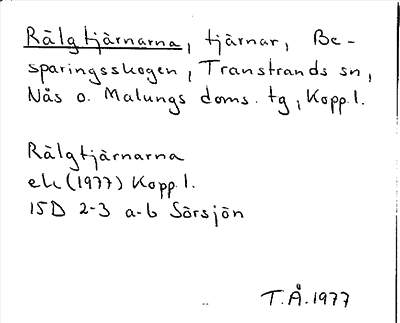 Rälgtjärnarna, tjärnar, Be-
sparingsskogen, Transtrands sn,
Nås o. Malungs doms. tg, Kopp.l.
Rälgtjärnarna
ek (1977) Kopp.l.
15D 2-3 a-b Sörsjön
T.Å.1977